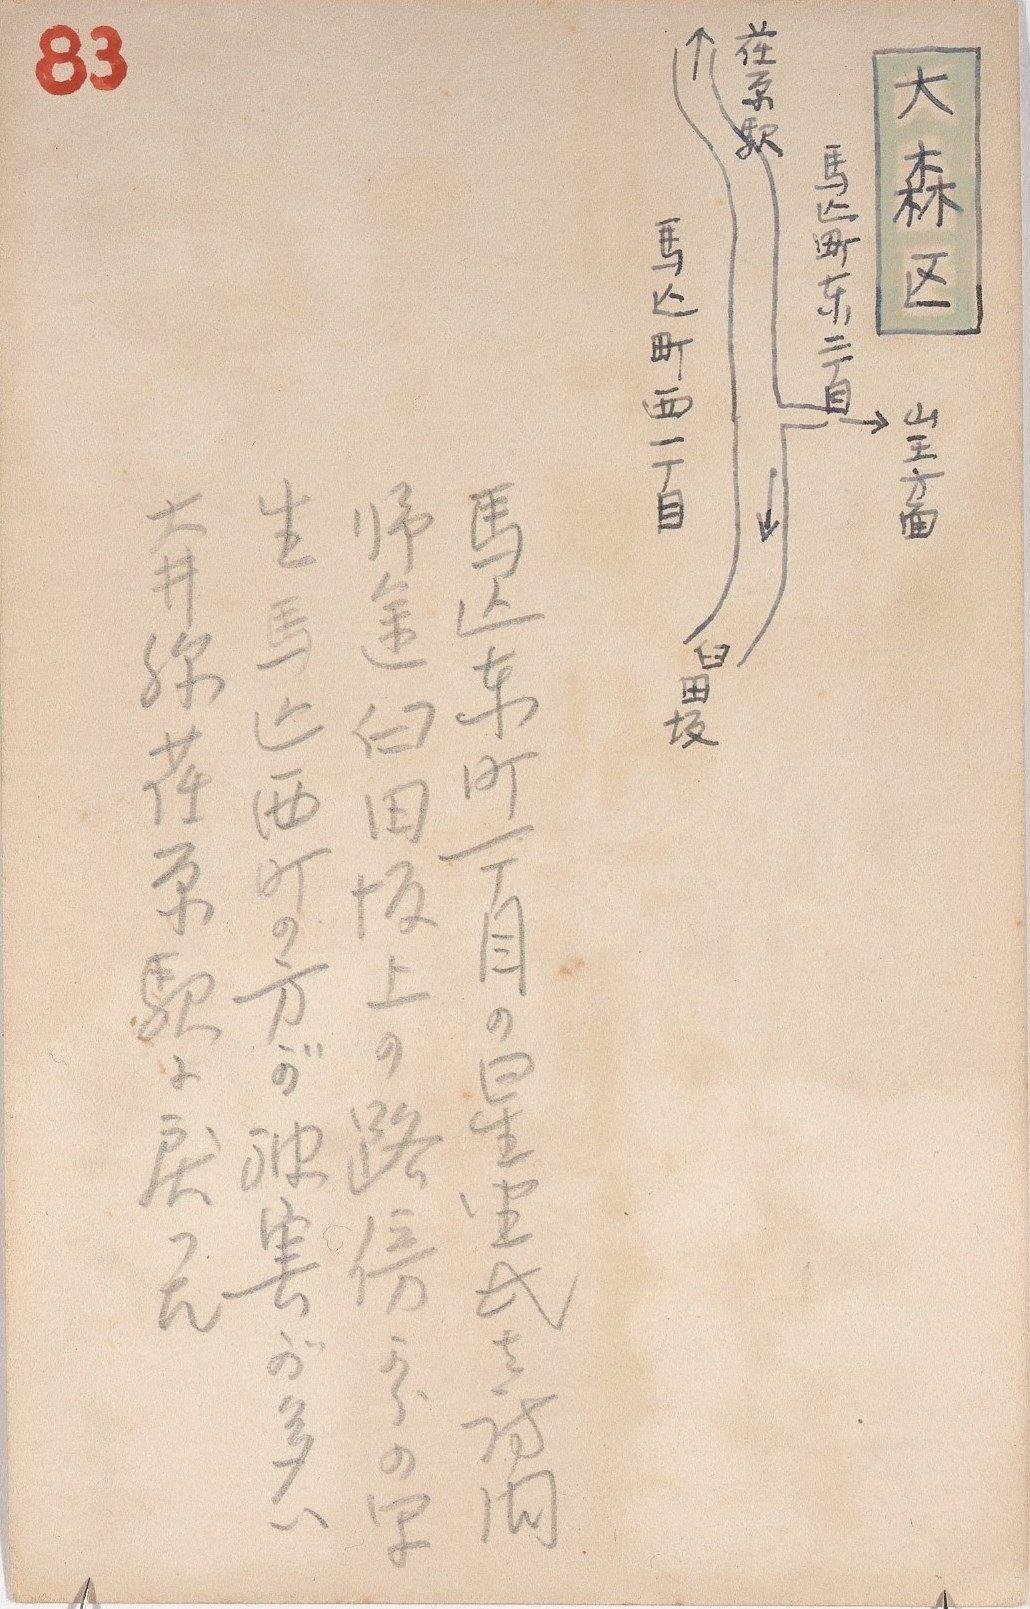 83
大森区
山王方面
馬込町東二丁目
荏原駅
馬込町西一丁目
臼田坂
馬込東町一丁目の星埜氏を訪問
帰途臼田坂上の路傍の写
生馬込西町の方が被害が多い
荏原駅に戻った